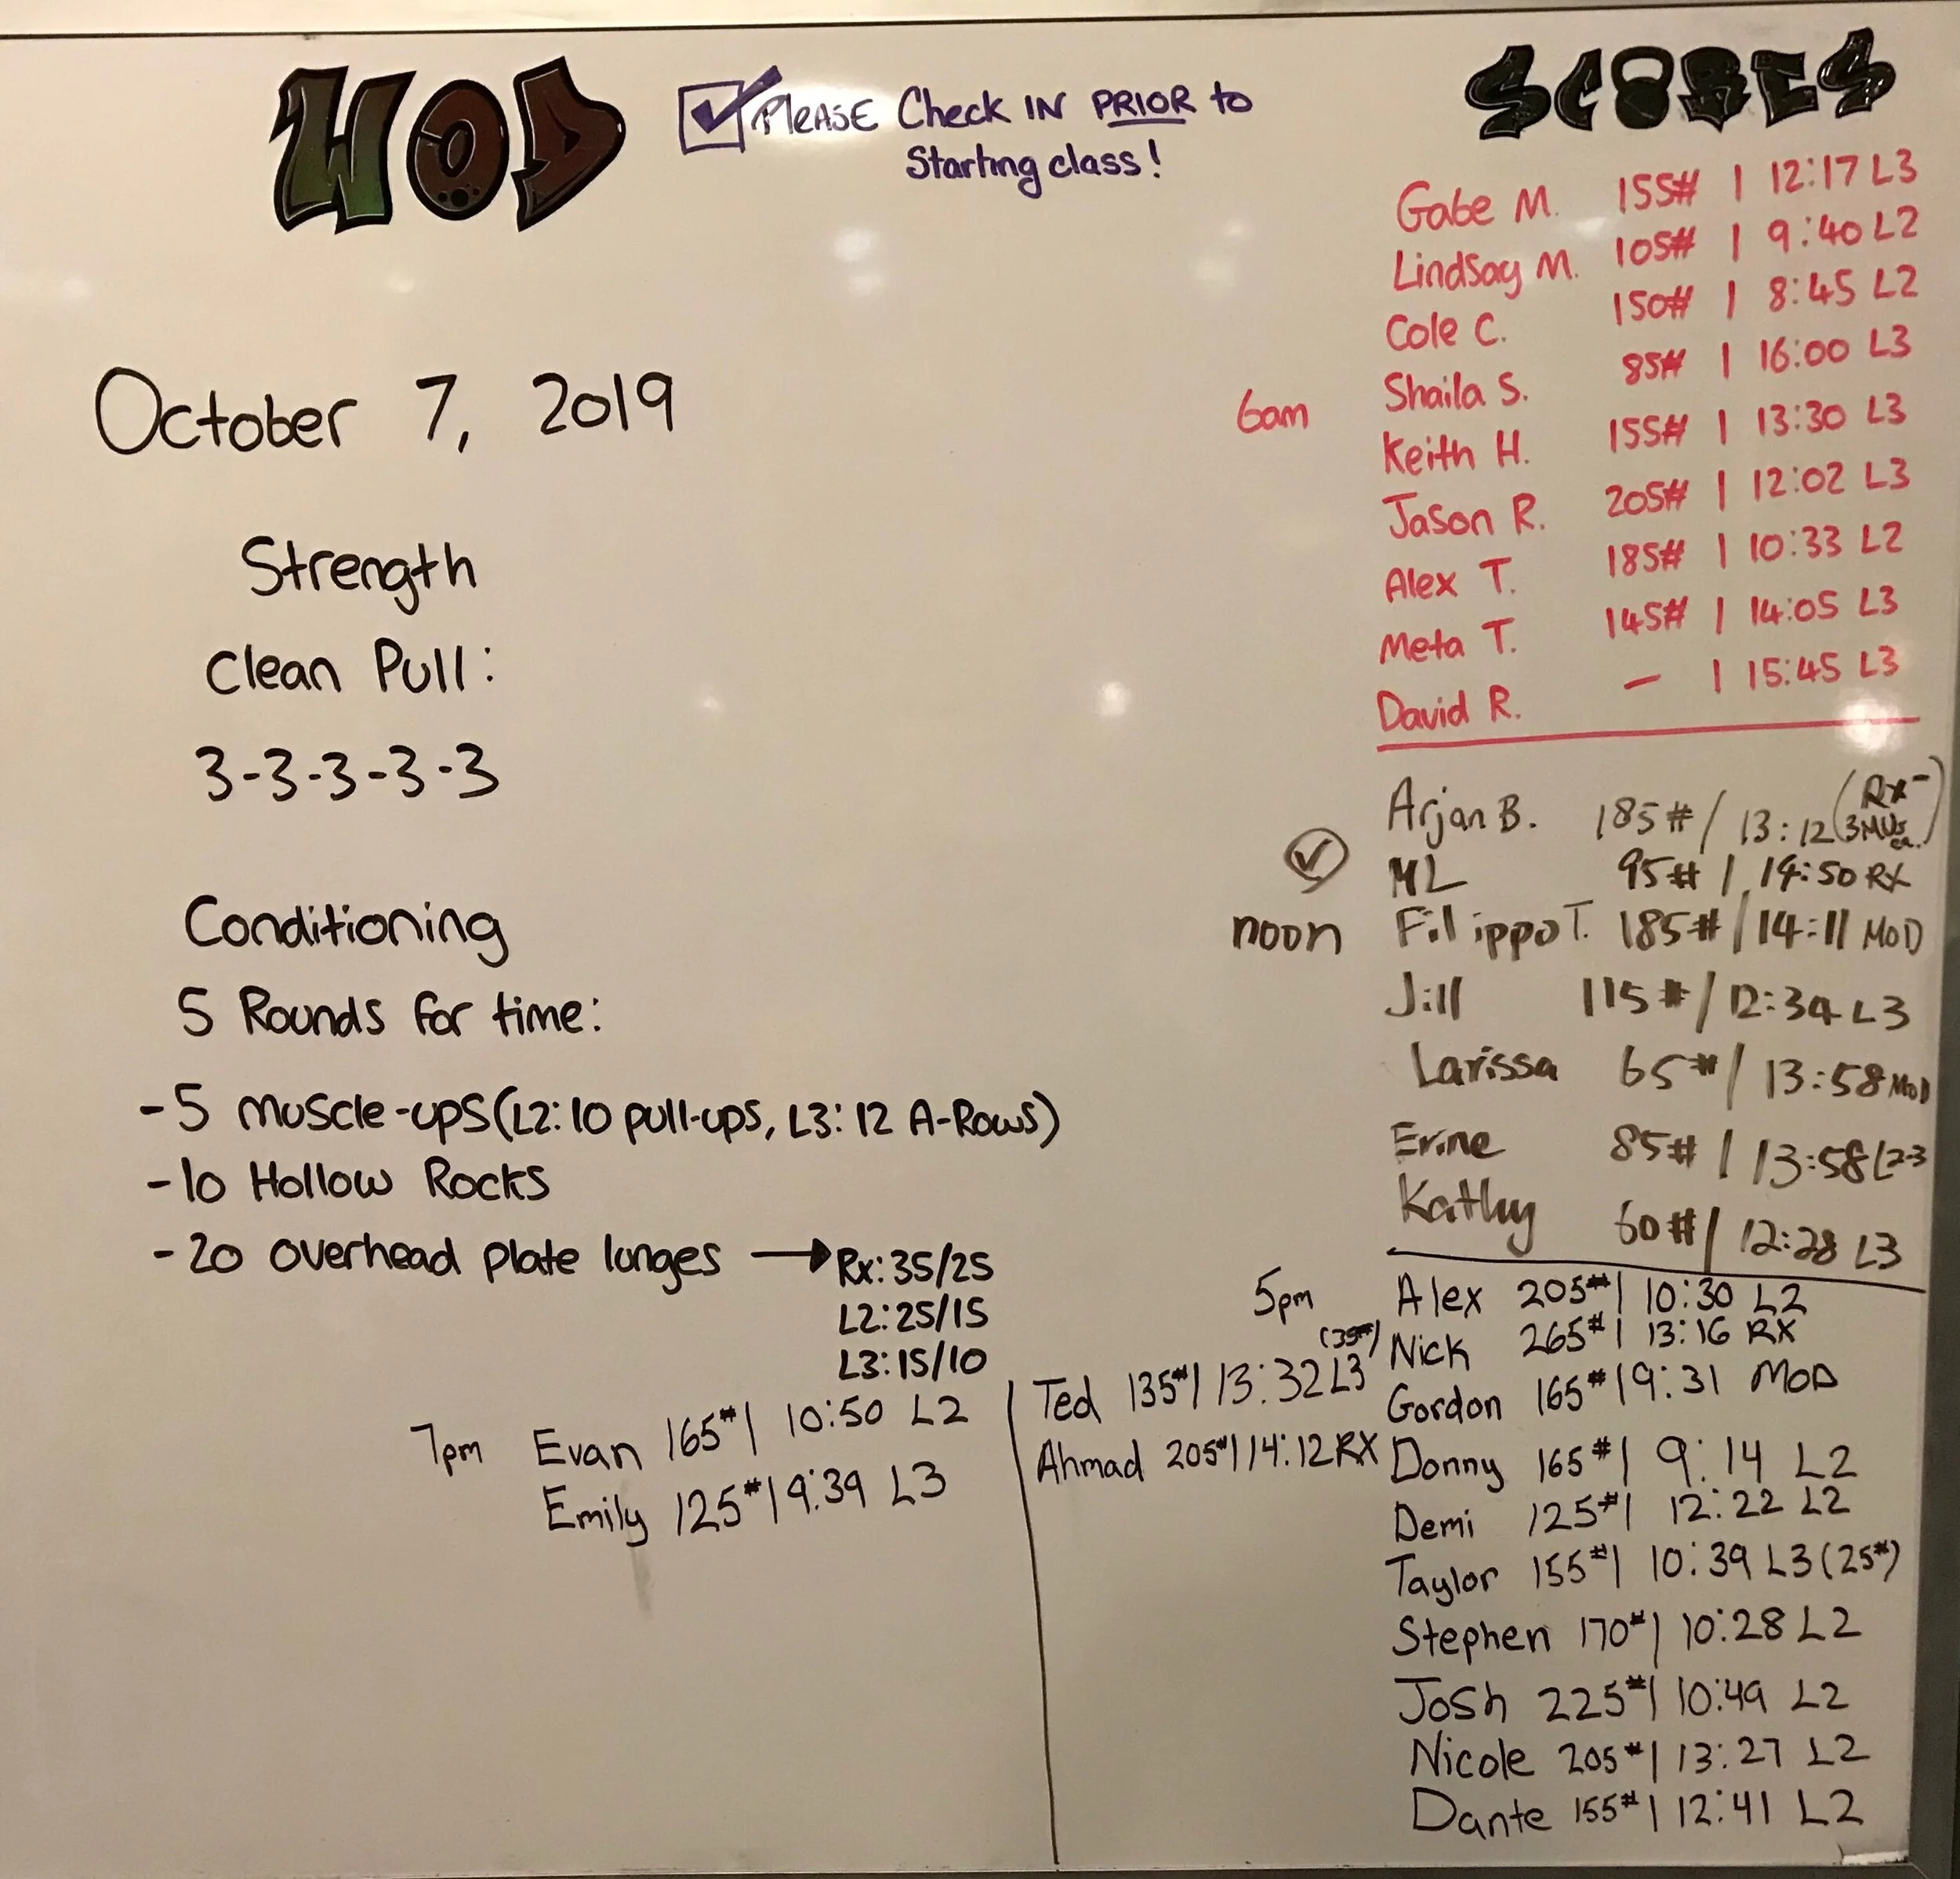 WOD
PLEASE Check IN PRIOR to
Starting class!
October 7, 2019
Strength
Clean Pull:
3-3-3-3-3
Conditioning
5 Rounds for time:
-5 muscle-ups (L2: 10 pull-ups, L3: 12 A-Rows)
-10 Hollow Rocks
-20 overhead plate lunges → Rx: 35/25
L2: 25/15
L3: 15/10
7pm Evan 165# | 10:50 L2
Emily 125# | 9:39 L3
SCORES
6am
Gabe M. 155# | 12:17 L3
Lindsay M. 105# | 9:40 L2
Cole C. 150# | 8:45 L2
Shaila S. 85# | 16:00 L3
Keith H. 155# | 13:30 L3
Jason R. 205# | 12:02 L3
Alex T. 185# | 10:33 L2
Meta T. 145# | 14:05 L3
David R. - | 15:45 L3
noon
Arjan B. 185# / 13:12 (Rx- 3MUs ea.)
ML 95# | 14:50 RX
Filippo T. 185# / 14:11 MOD
Jill 115# / 12:34 L3
Larissa 65# / 13:58 MOD
Erine 85# | 13:58 L2-3
Kathy 60# / 12:28 L3
5pm
Alex 205# | 10:30 L2
Nick 265# | 13:16 RX
Gordon 165# | 9:31 MOD
Donny 165# | 9:14 L2
Demi 125# | 12:22 L2
Taylor 155# | 10:39 L3 (25#)
Stephen 170# | 10:28 L2
Josh 225# | 10:49 L2
Nicole 205# | 13:27 L2
Dante 155# | 12:41 L2
Ted 135# | 13:32 L3 (35#)
Ahmad 205# | 14:12 RX